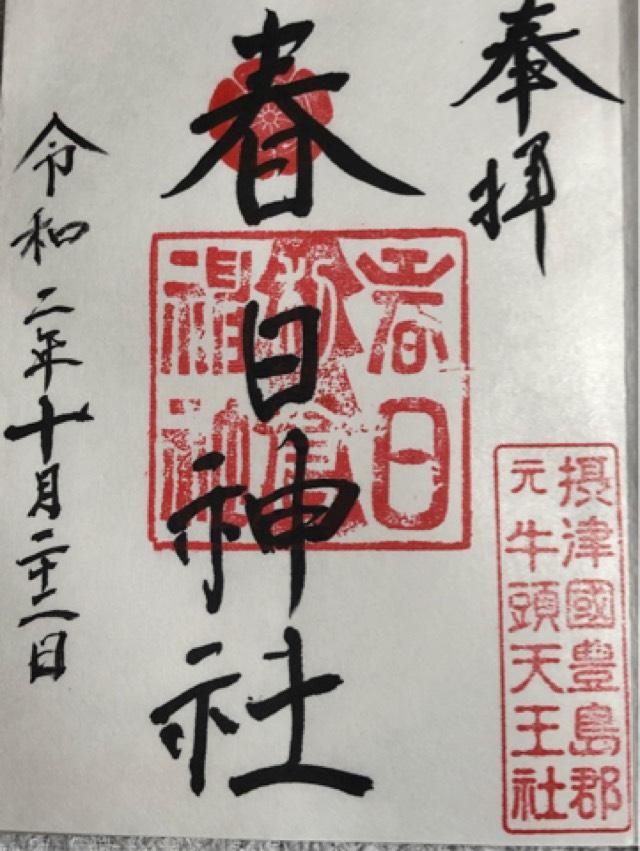 奉拝
摂津國豊島郡
元牛頭天王社
春日神社
春日
令和二年十月二十二日